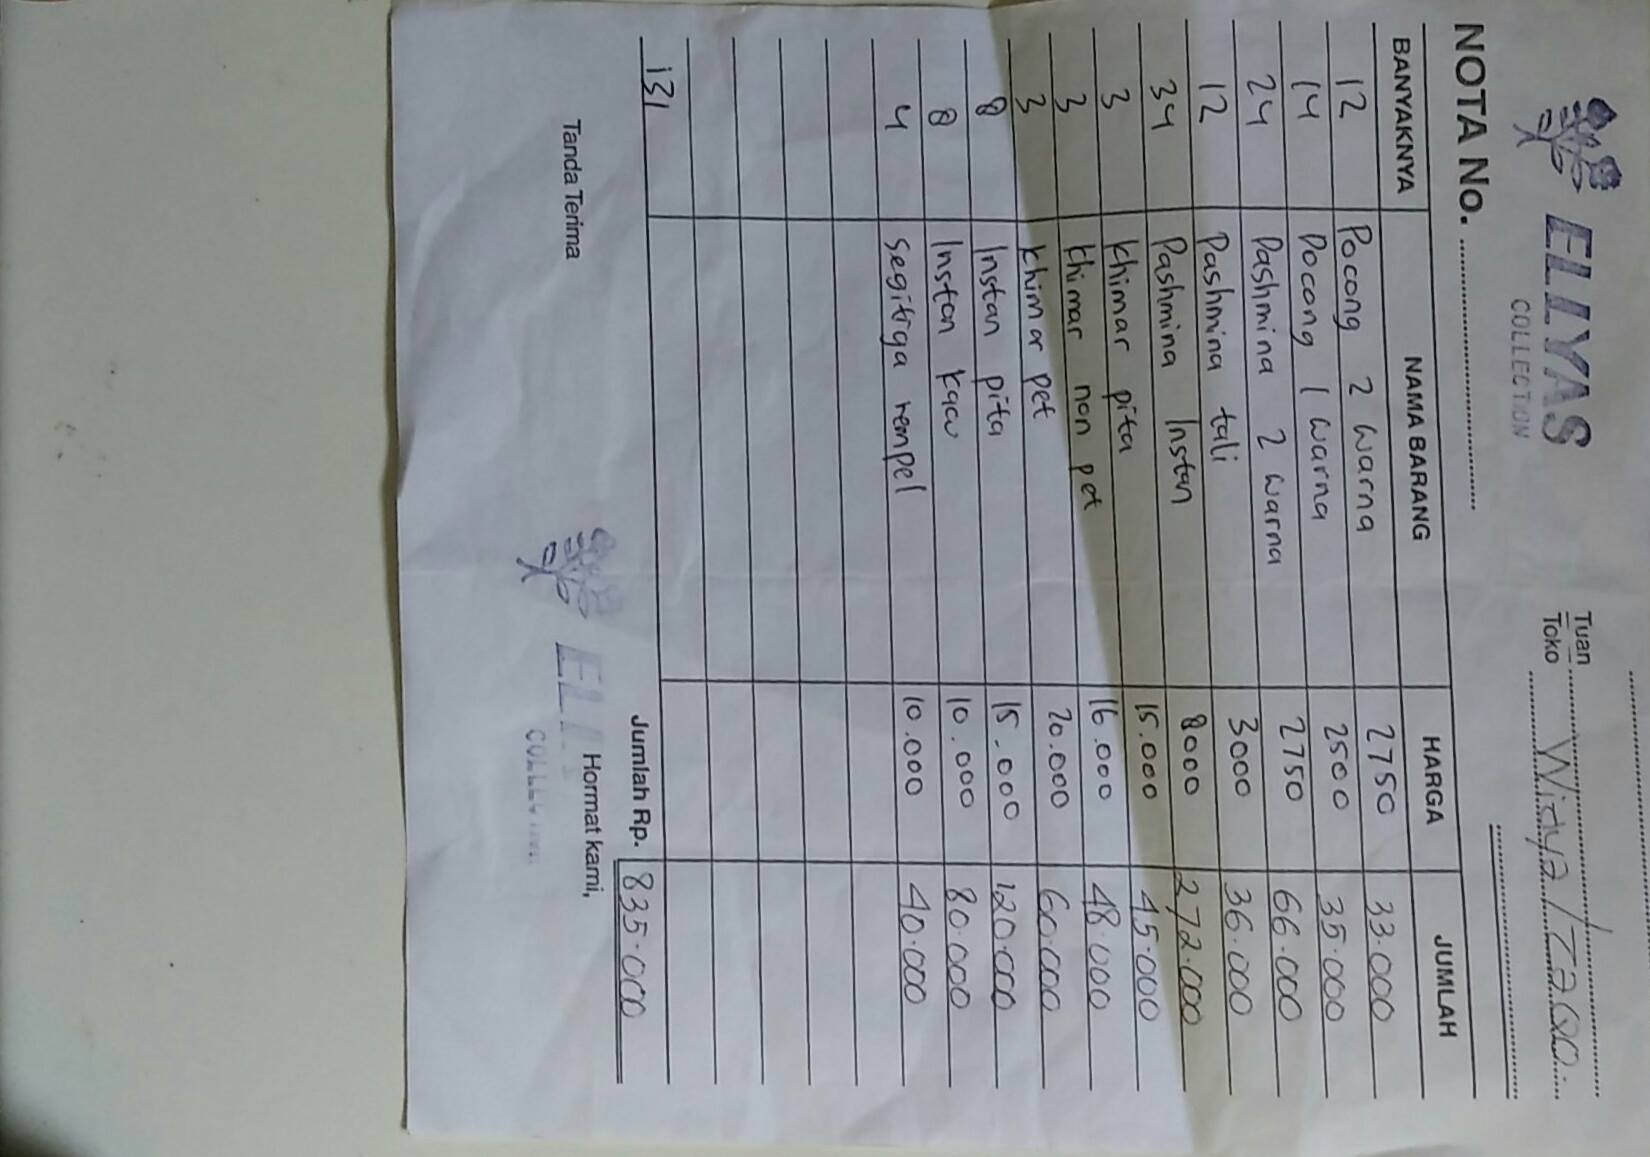 ELIYAS
COLLECTION
Tuan
Toko
NOTA No.
BANYAKNYA NAMA BARANG HARGA JUMLAH
12 Pocong 2 warna 2750 33.000
14 Pocong 1 warna 2500 35.000
24 Pashmina 2 warna 2750 66.000
12 Pashmina tali 3000 36.000
34 Pashmina Instan 8000 272.000
3 khimar pita 15.000 45.000
3 khimar non pet 16.000 48.000
3 khimar pet 20.000 60.000
8 Instan pita 15.000 120.000
8 Instan 10.000 80.000
4 segitiga rempel 10.000 40.000
131 Jumlah Rp. 835.000
Tanda Terima Hormat kami,